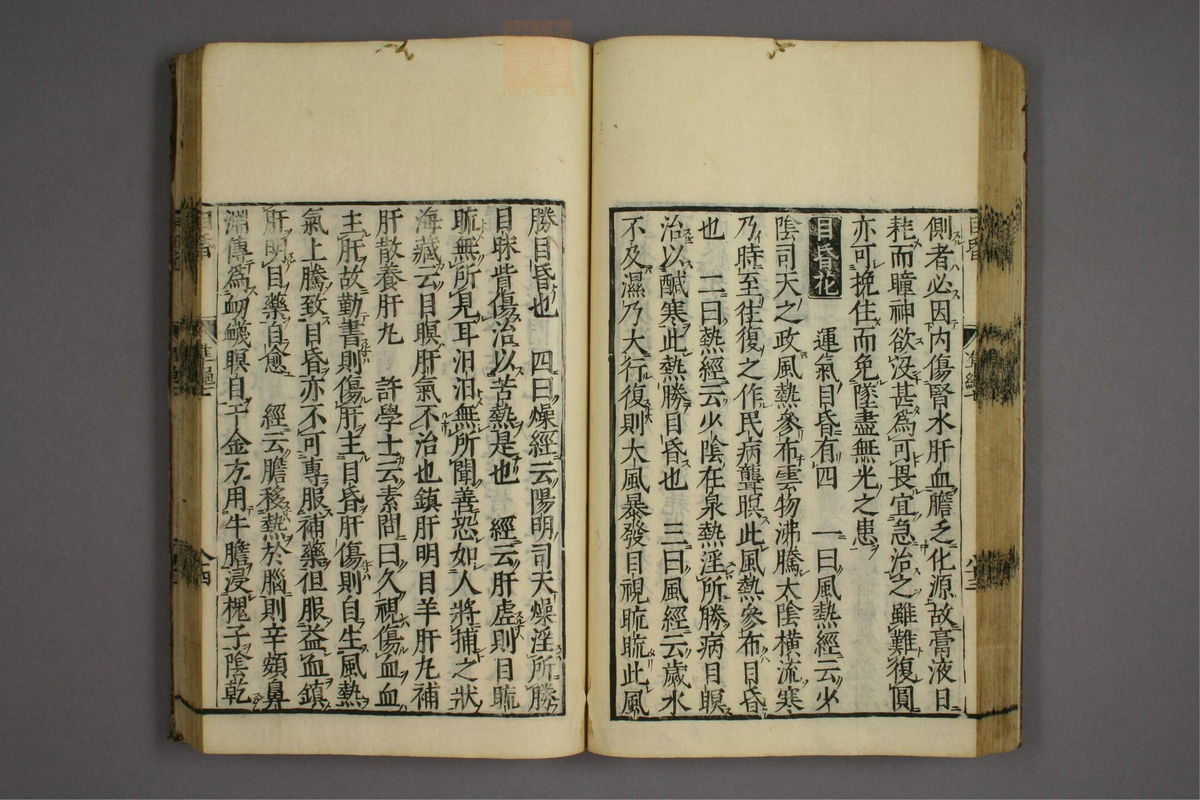 側者必因内傷腎水肝血膽乏化源故膏液日
耗而瞳神欲沒甚爲可畏宜急治之雖難復圓
亦可挽住而免墜盡無光之患
目昏花　運氣目昏有四　一曰風熱經云少
陰司天之政風熱參布雲物沸騰太陰橫流寒
乃時至往復之作民病聾瞑此風熱參布目昏
也　二曰熱經云少陰在泉熱淫所勝病目瞑
治以醎寒此熱勝目昏也　三曰風經云歲水
不及濕乃大行復則大風暴發目視䀮䀮此風
勝目昏也　四曰燥經云陽明司天燥淫所勝
目眛眥傷治以苦熱是也　經云肝虛則目䀮
䀮無所見耳汨汨無所聞善恐如人將捕之狀
海藏云目瞑肝氣不治也鎮肝明目羊肝丸補
肝散養肝丸　許學士云素問曰久視傷血血
主肝故勤書則傷肝主目昏肝傷則自生風熱
氣上騰致目昏亦不可專服補藥但服益血鎮
肝明目藥自愈　經云膽移熱於腦則辛頞鼻
淵傳爲衂衊瞑目千金方用牛膽浸槐子陰乾
目昏
八十四